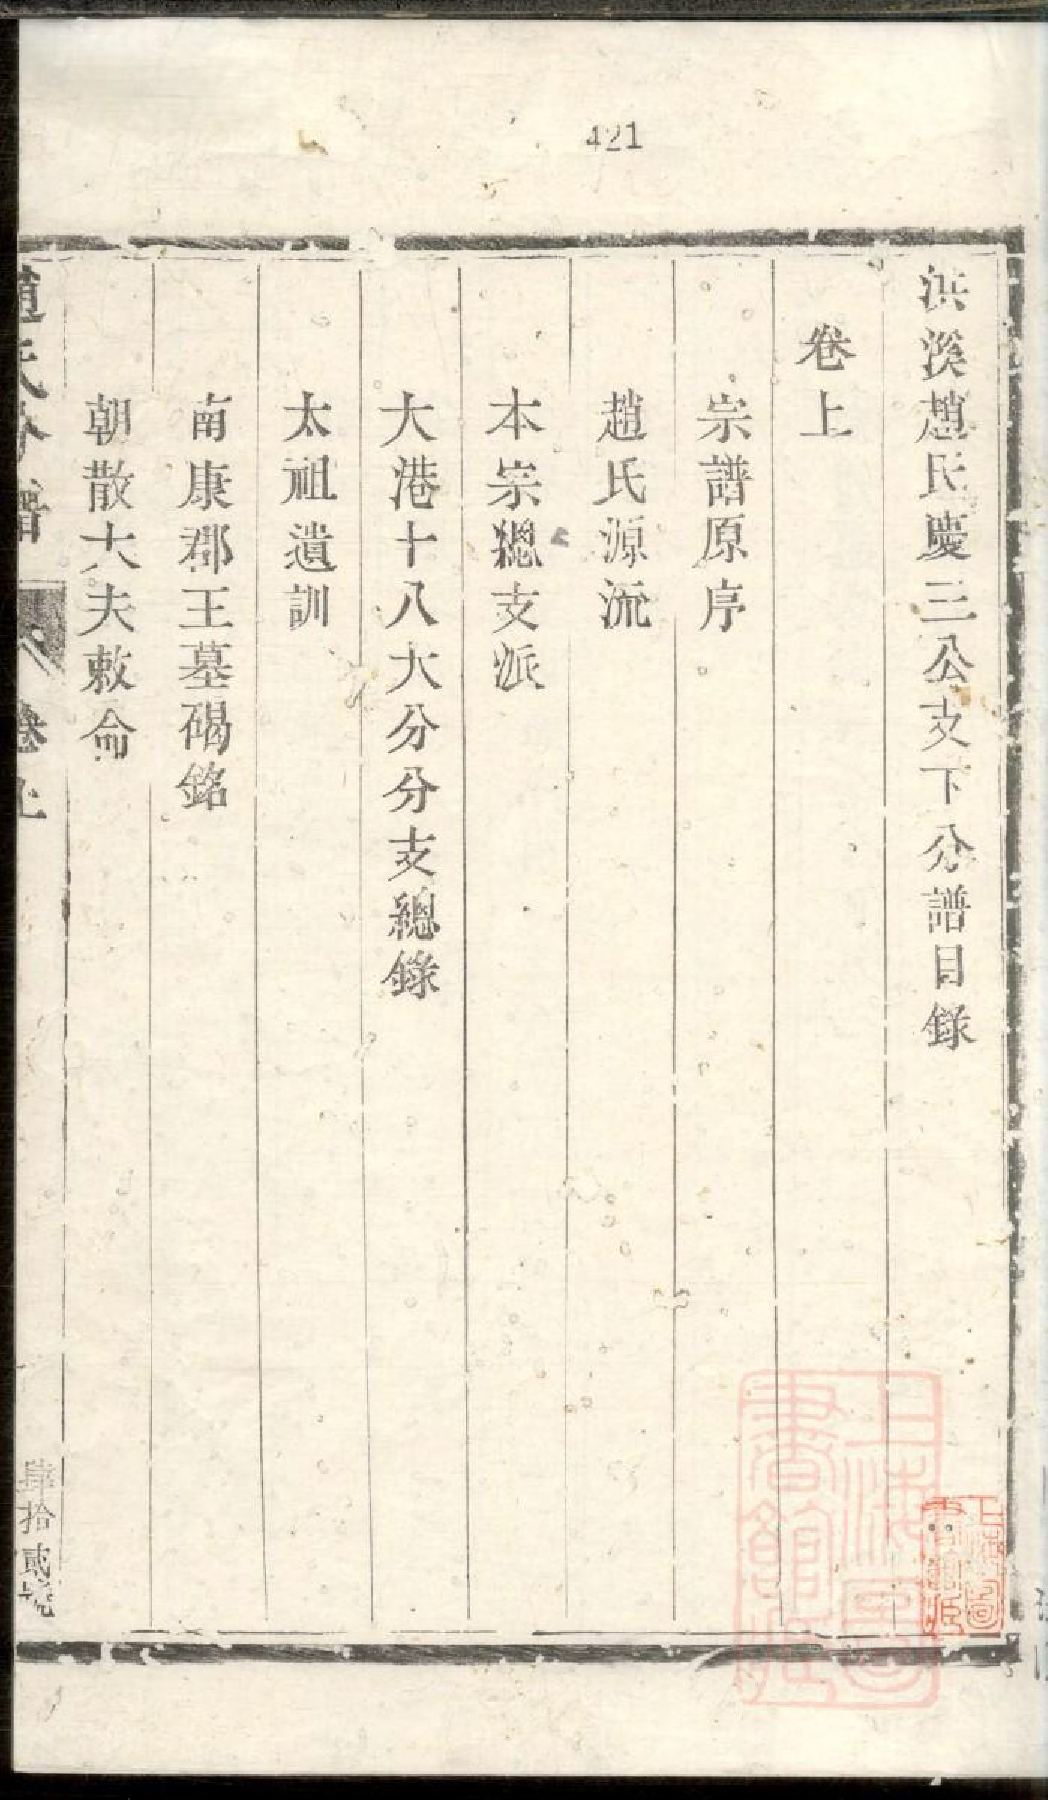 421
洪溪趙氏慶三公支下分譜目錄
卷上
宗譜原序
趙氏源流
本宗總支派
大港十八大分分支總錄
太祖遺訓
南康郡王墓碣銘
朝散大夫敕命
趙氏分譜
卷上
肆拾貳號
上海圖書館藏